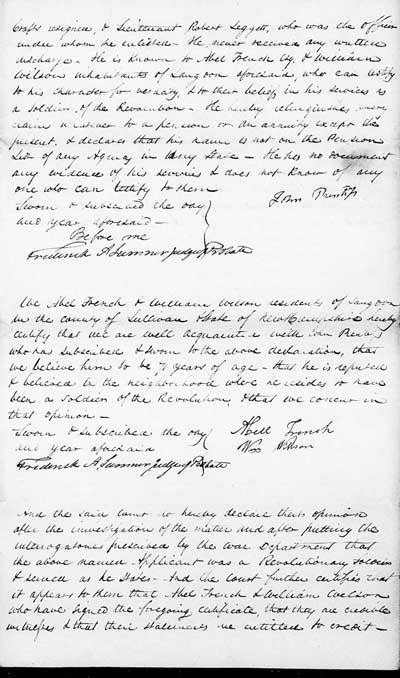 Crafts resigned, & Lieutenant Robert Leggett, who was the Officer
under whom he enlisted - He never received any written
discharge - He is Known to Abel French Esq. & William
Wilson inhabitants of Langdon aforesaid, who can testify
to his character for veracity, & to their belief in his services as
a Soldier of the Revolution - He hereby relinquishes every
claim whatever to a pension or an annuity except the
present, & declares that his name is not on the Pension
List of any Agency in any State - He has no document
any evidence of his services & does not Know of any
one who can testify to them
John Prentiss
Sworn & subscribed the day
and year aforesaid -
Before me
Frederick A Sumner Judge of Probate
We Abel French & William Wilson residents of Langdon
in the county of Sullivan & State of New Hampshire hereby
certify that we are well acquainted with John Prentiss
who has subscribed & sworn to the above declaration, that
we believe him to be 71 years of age - that he is reputed
& believed in the neighborhood where he resides to have
been a Soldier of the Revolution, & that we concur in
that opinion -
Sworn & subscribed the day
and year aforesaid
Abell French
Wm Wilson
Frederick A. Sumner Judge of Probate
And the said court do hereby declare their opinion
after the investigation of the matter and after putting the
interrogatories prescribed by the War Department that
the above named Applicant was a Revolutionary Soldier
& served as he states - And the Court further certifies that
it appears to them that Abel French & William Wilson
who have signed the foregoing certificate, that they are credible
witnesses & that their statements are entitled to credit -